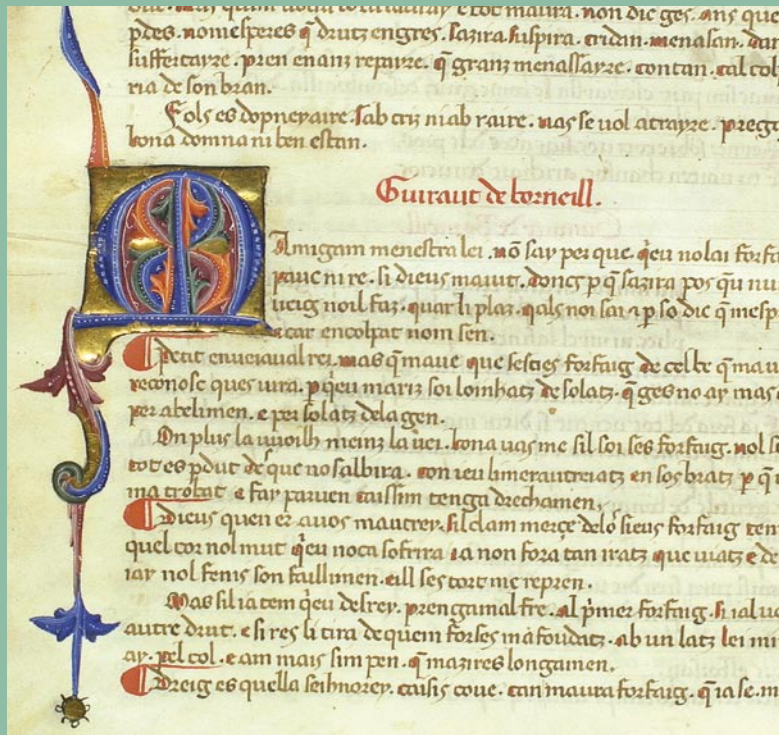 que. mas quim volra tolra lauray e tot maura. non dic ges. ans que
pdes. nomesperes q̄ drutz engres. sazira. suspira. cridan. menasan. dan
suffertayre. pren enanz repayre. q̄ granz menassayre. contan. tal colp
ria de son bran.
Fols es dopneyaire. sab criz ni ab raire. uas se uol atrayre. pregs
bona domna ni ben estan.
Guiraut de borneill.
M Amigam menestra lei. nō say per que. q̄eu nolai forfa
pauc ni re. si dieus maiut. doncs p q̄ sazira pos qu nu
ueig noil faz. quar li plaz. qals noi sai ⁊ p so dic q̄ mesp
e car encolpat nom sen.
Petit enueiaual rei. mas q̄ maue que sesties forfaig de cel be q̄ mau
reconosc ques uira. p q̄eu mariz soi loinhatz de solatz. q̄ ges no ay mas
per abelimen. e per solatz dela gen.
On plus la uuoilh meinz la uei. bona uas me sil soi ses forfaig. nol s
tot es pdut de que nosalbira. con ieu limerautreiatz en sos bratz p q̄
ma trobat e fay paruen caissim tenga drechamen.
Dieus quen er auos mautrey. sil clam merçe delo sieus forfaig ten
quel cor nol mut q̄eu noca sofrira ia non fora tan iratz que uiatz e de
iay nol fenis son faillimen. eill ses tort me repren.
Mas sil ia tem q̄eu desrey. prengamal fre. al pͥmer forfaig. si ial uo
autre drut. e si res li tira de quem forses ma foudatz. ab un latz lei mi
ay. pel col. e am mais sim pen. q̄ mazires longamen.
Dreig es quella seihnorey. caisis coue. can maura forfaig. q̄ ia se. m